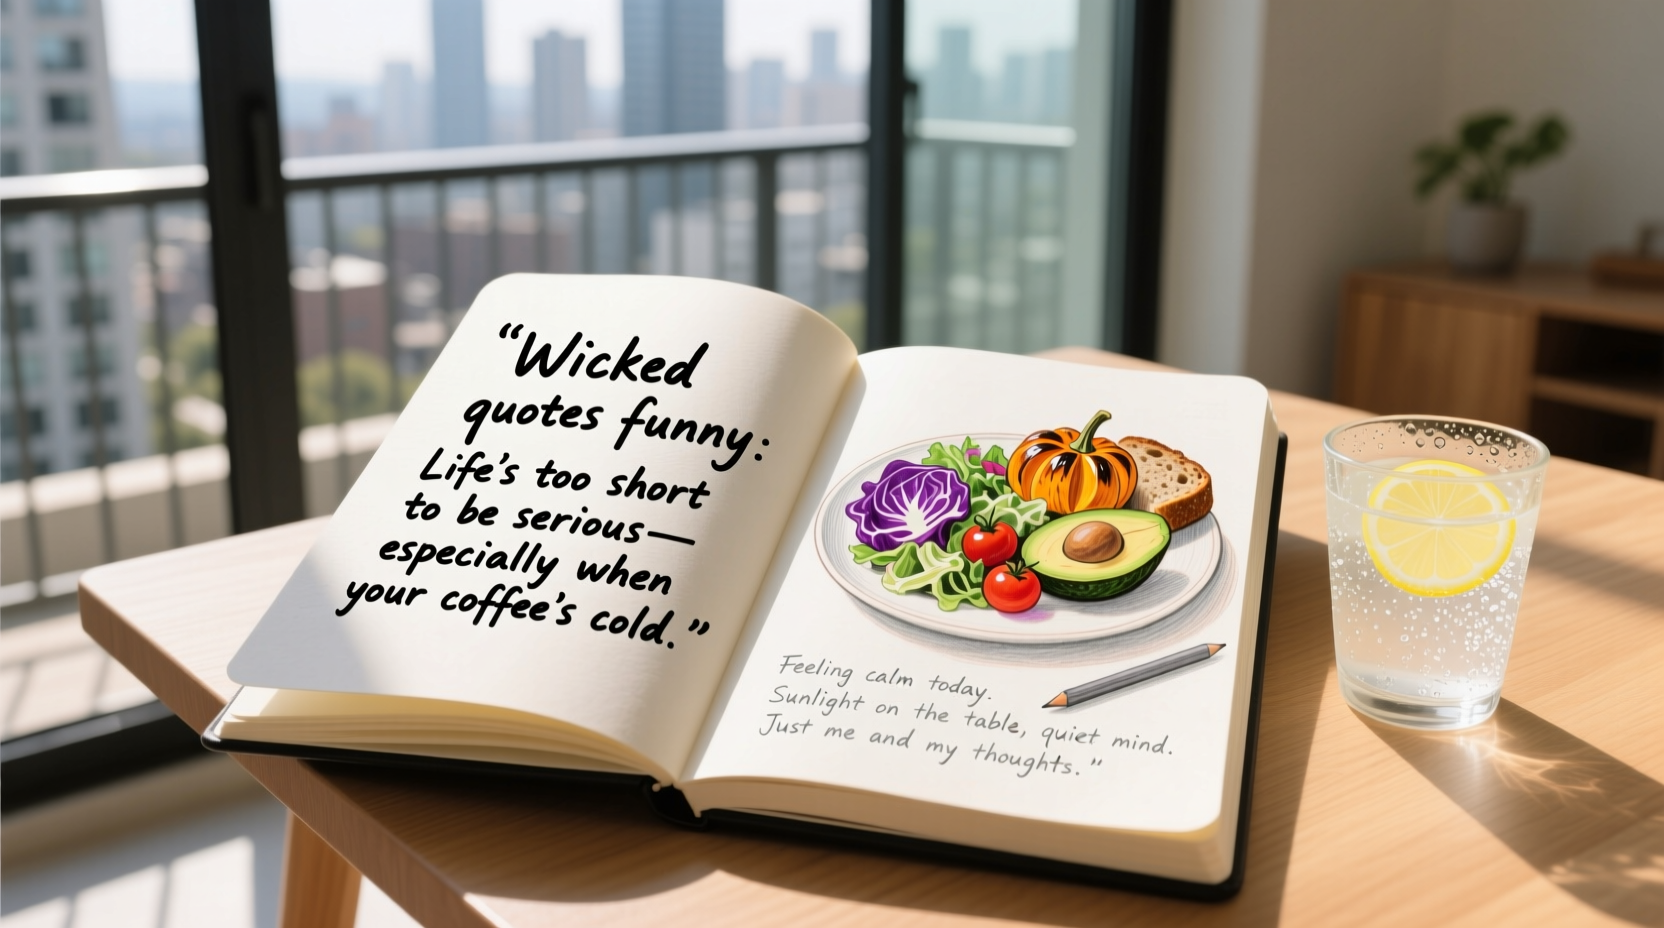 “Wicked
quotes funny:
Life's too short
to be serious—
especially when
your coffee's cold.”
Feeling calm today.
Sunlight on the table, quiet mind.
Just me and my thoughts.”